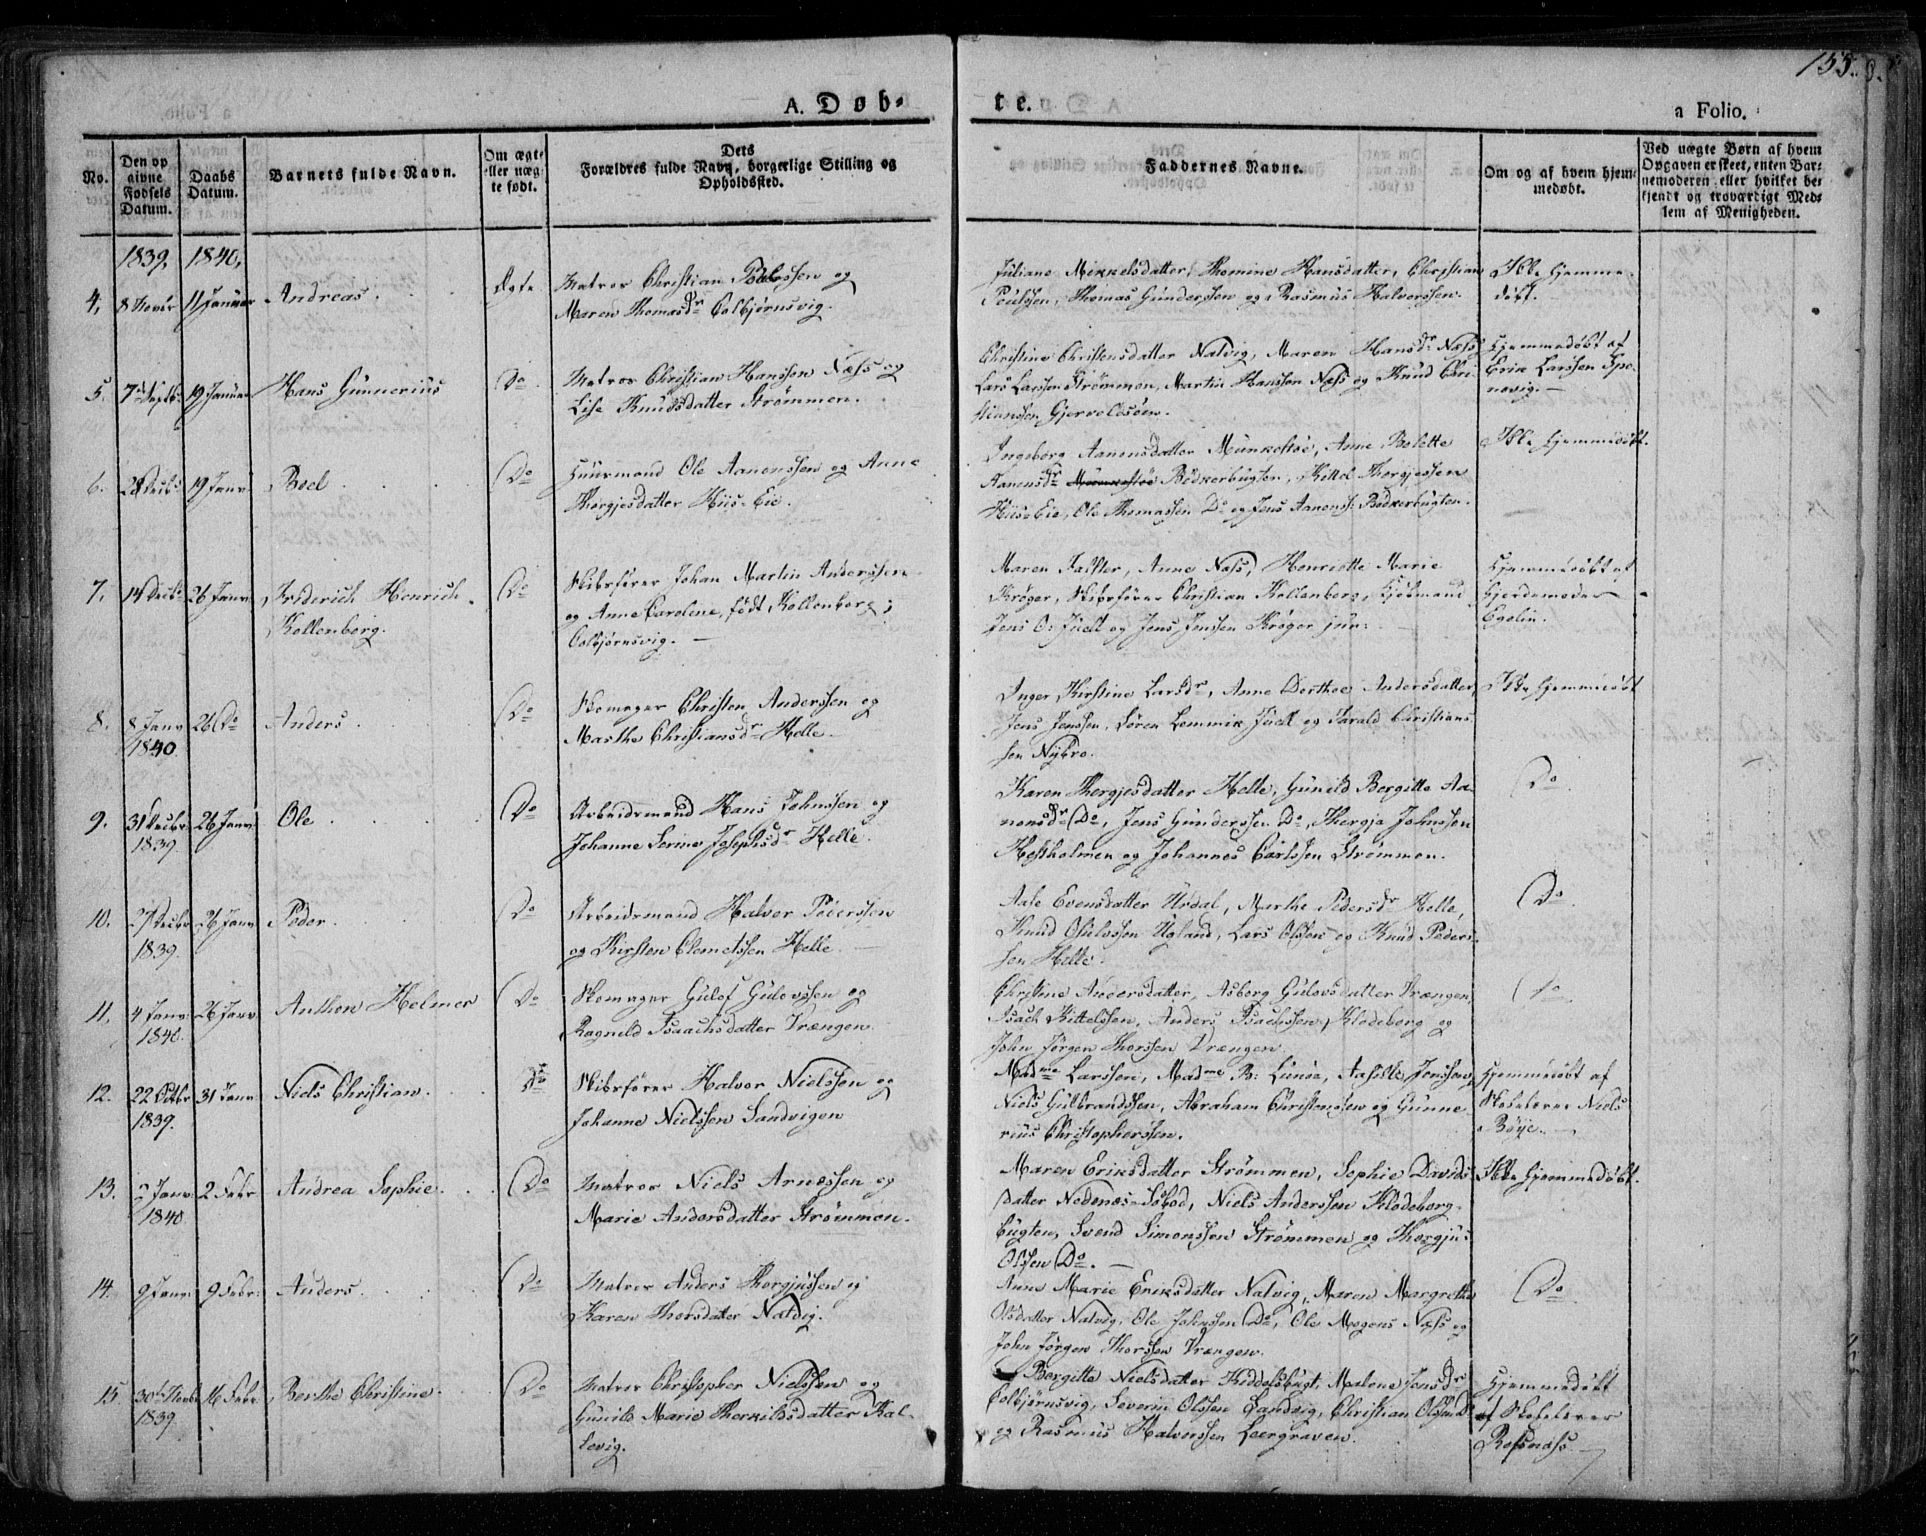 155.
A. Døb-
te.
a Folio.
No.
Den op
givne
Fødsels
Datum.
Daabs
Datum.
Barnets fulde Navn.
Om ægte
eller uæg-
te født.
Dets
Forældres fulde Navn, borgerlige Stilling og
Opholdssted.
Faddernes Navne.
Om og af hvem hjem-
medøbt.
Ved uægte Børn af hvem
Opgaven er skeet, enten Bar-
nemoderen eller hvilket be-
kjendt og troværdigt Med-
lem af Menigheden.
1839. 1840.
4. 8 Novbr 11 Januar Andreas. Ægte Matros Christian Poulssen og
Maren Thomasdr Colbjørnsvig.
Juliane Mikkelsdatter, Thomine Hansdatter, Christian
Poulssen, Thomas Gunderssen og Rasmus Halvorssen.
Ikke hjemme-
døbt.
5. 7de Septbr 19 Januar Hans Gunnerius Do Matros Christian Hanssen Næss og
Lise Knudsdatter Strømmen.
Christine Christensdatter Natvig, Maren Hansdr Næss,
Lars Larssen Strømmen, Martin Hanssen Næss og Knud Chri-
stianssen Gjervoldsøen.
Hjemmedøbt af
Erik Larssen Spo-
nevig.
6. 28 Decbr 19 Janv Boel Do Huusmand Ole Aanenssen og Anne
Thorgjesdatter Hiis-Eie.
Ingeborg Aanensdatter Munkestøe, Anne Bolette
Aanensdr Munkestøe Bødkerbugten, Kittel Thorgjessen
Hiis-Eie, Ole Thomassen Do og Jens Aanenss: Bødkerbugten.
Ikke hjemmedøbt.
7. 14 Decbr 26 Janv Friderich Henrich
Kallenberg.
Do Skibsfører Johan Martin Anderssen
og Anne Caroline, født Kallenberg;
Colbjørnsvig.
Maren Falster, Anne Næss, Henriette Marie
Krøger, Skibsfører Christian Kallenberg, Kjøbmand
Jens O: Juell og Jens Jenssen Krøger jun:
Hjemmedøbt af
Gjordemoder
Egelin.
8. 8 Janv
1840.
26 Do Anders. Do Skomager Christen Anderssen og
Marthe Christiansdr Helle.
Inger Kirstine Larsdr, Anne Dorthee Andersdatter,
Jens Jenssen, Søren Lemmik Juell og Tarald Christians-
sen Nybro.
Ikke hjemmedøbt
9. 31 Decbr
1839.
26 Janv Ole. Do Arbeidsmand Hans Johnssen og
Johanne Serine Josephsdr Helle.
Karen Thorgjesdatter Helle, Gunild Bergitte Aa-
nonsdr Do, Jens Gunderssen Do, Thergje Johnssen
Hestholmen og Johannes Carlssen Strømmen.
Do
10. 27 Decbr
1839.
26 Janv Peder. Do Arbeidsmand Halvor Pederssen
og Kirsten Clemetssen Helle
Aase Evensdatter Usdal, Marthe Pedersdr Helle,
Knud Osulssen Ugland, Lars Olssen og Knud Peders-
sen Helle.
Do
11. 4 Janv
1840.
26 Janv Anthon Helmer Do Skomager Gulof Gulovssen og
Ragnild Isaachsdatter Vrængen
Christine Andersdatter, Asborg Gulovsdatter Vrængen,
Isach Kittelssen, Anders Isachssen Klodeborg og
John Jørgen Thorssen Vrængen.
Do
12. 22 Octbr
1839.
31 Janv Niels Christian. Do Skibsfører Halvor Nielssen og
Johanne Nielssen Sandvigen
Madme Larssen, Madme B: Lunøe, Aasille Jenssen,
Niels Gulbrandssen, Abraham Christenssen og Gunne-
rius Christopherssen.
Hjemmedøbt af
Skolelærer Niels
Böye.
13. 7 Janv
1840.
2 Febr Andrea Sophie. Do Matros Niels Arnessen og
Marie Andersdatter Strømmen.
Maren Eriksdatter Strømmen, Sophie Davids-
datter Nedenæs-Søbod, Niels Anderssen Klodeborg-
bugten, Svend Simonssen Strømmen og Thorgjus
Olssen Do.
Ikke hjemmedøbt.
14. 9 Janv 9 Febr: Anders. Do Matros Anders Thorgjussen og
Karen Thorsdatter Natvig.
Anne Marie Eriksdatter Natvig, Maren Margrethe
Olsdatter Natvig, Ole Johnssen Do, Ole Mogens Næss og
John Jørgen Thorssen Vrængen.
Do
15 30te Novbr
1839
16 Febr Berthe Christine. Do Matros Christopher Nielssen og
Gunild Marie Therkildsdatter Kal-
levig.
Bergitte Nielsdatter Kiddelsbugt, Malene Jensdr
Colbjørnsvig, Severin Olssen Sandvig, Christian Olssen Do
og Rasmus Halvorssen Leergraven.
Hjemmedøbt
af Skolelærer
Rossnæss